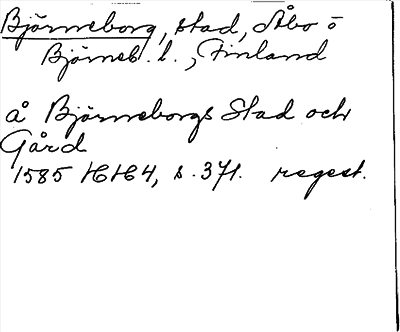 Björneborg, stad, Åbo o
Björneb. l., Finland
å Björneborgs Stad och
Gård
1585 HH4, s. 371. regest.